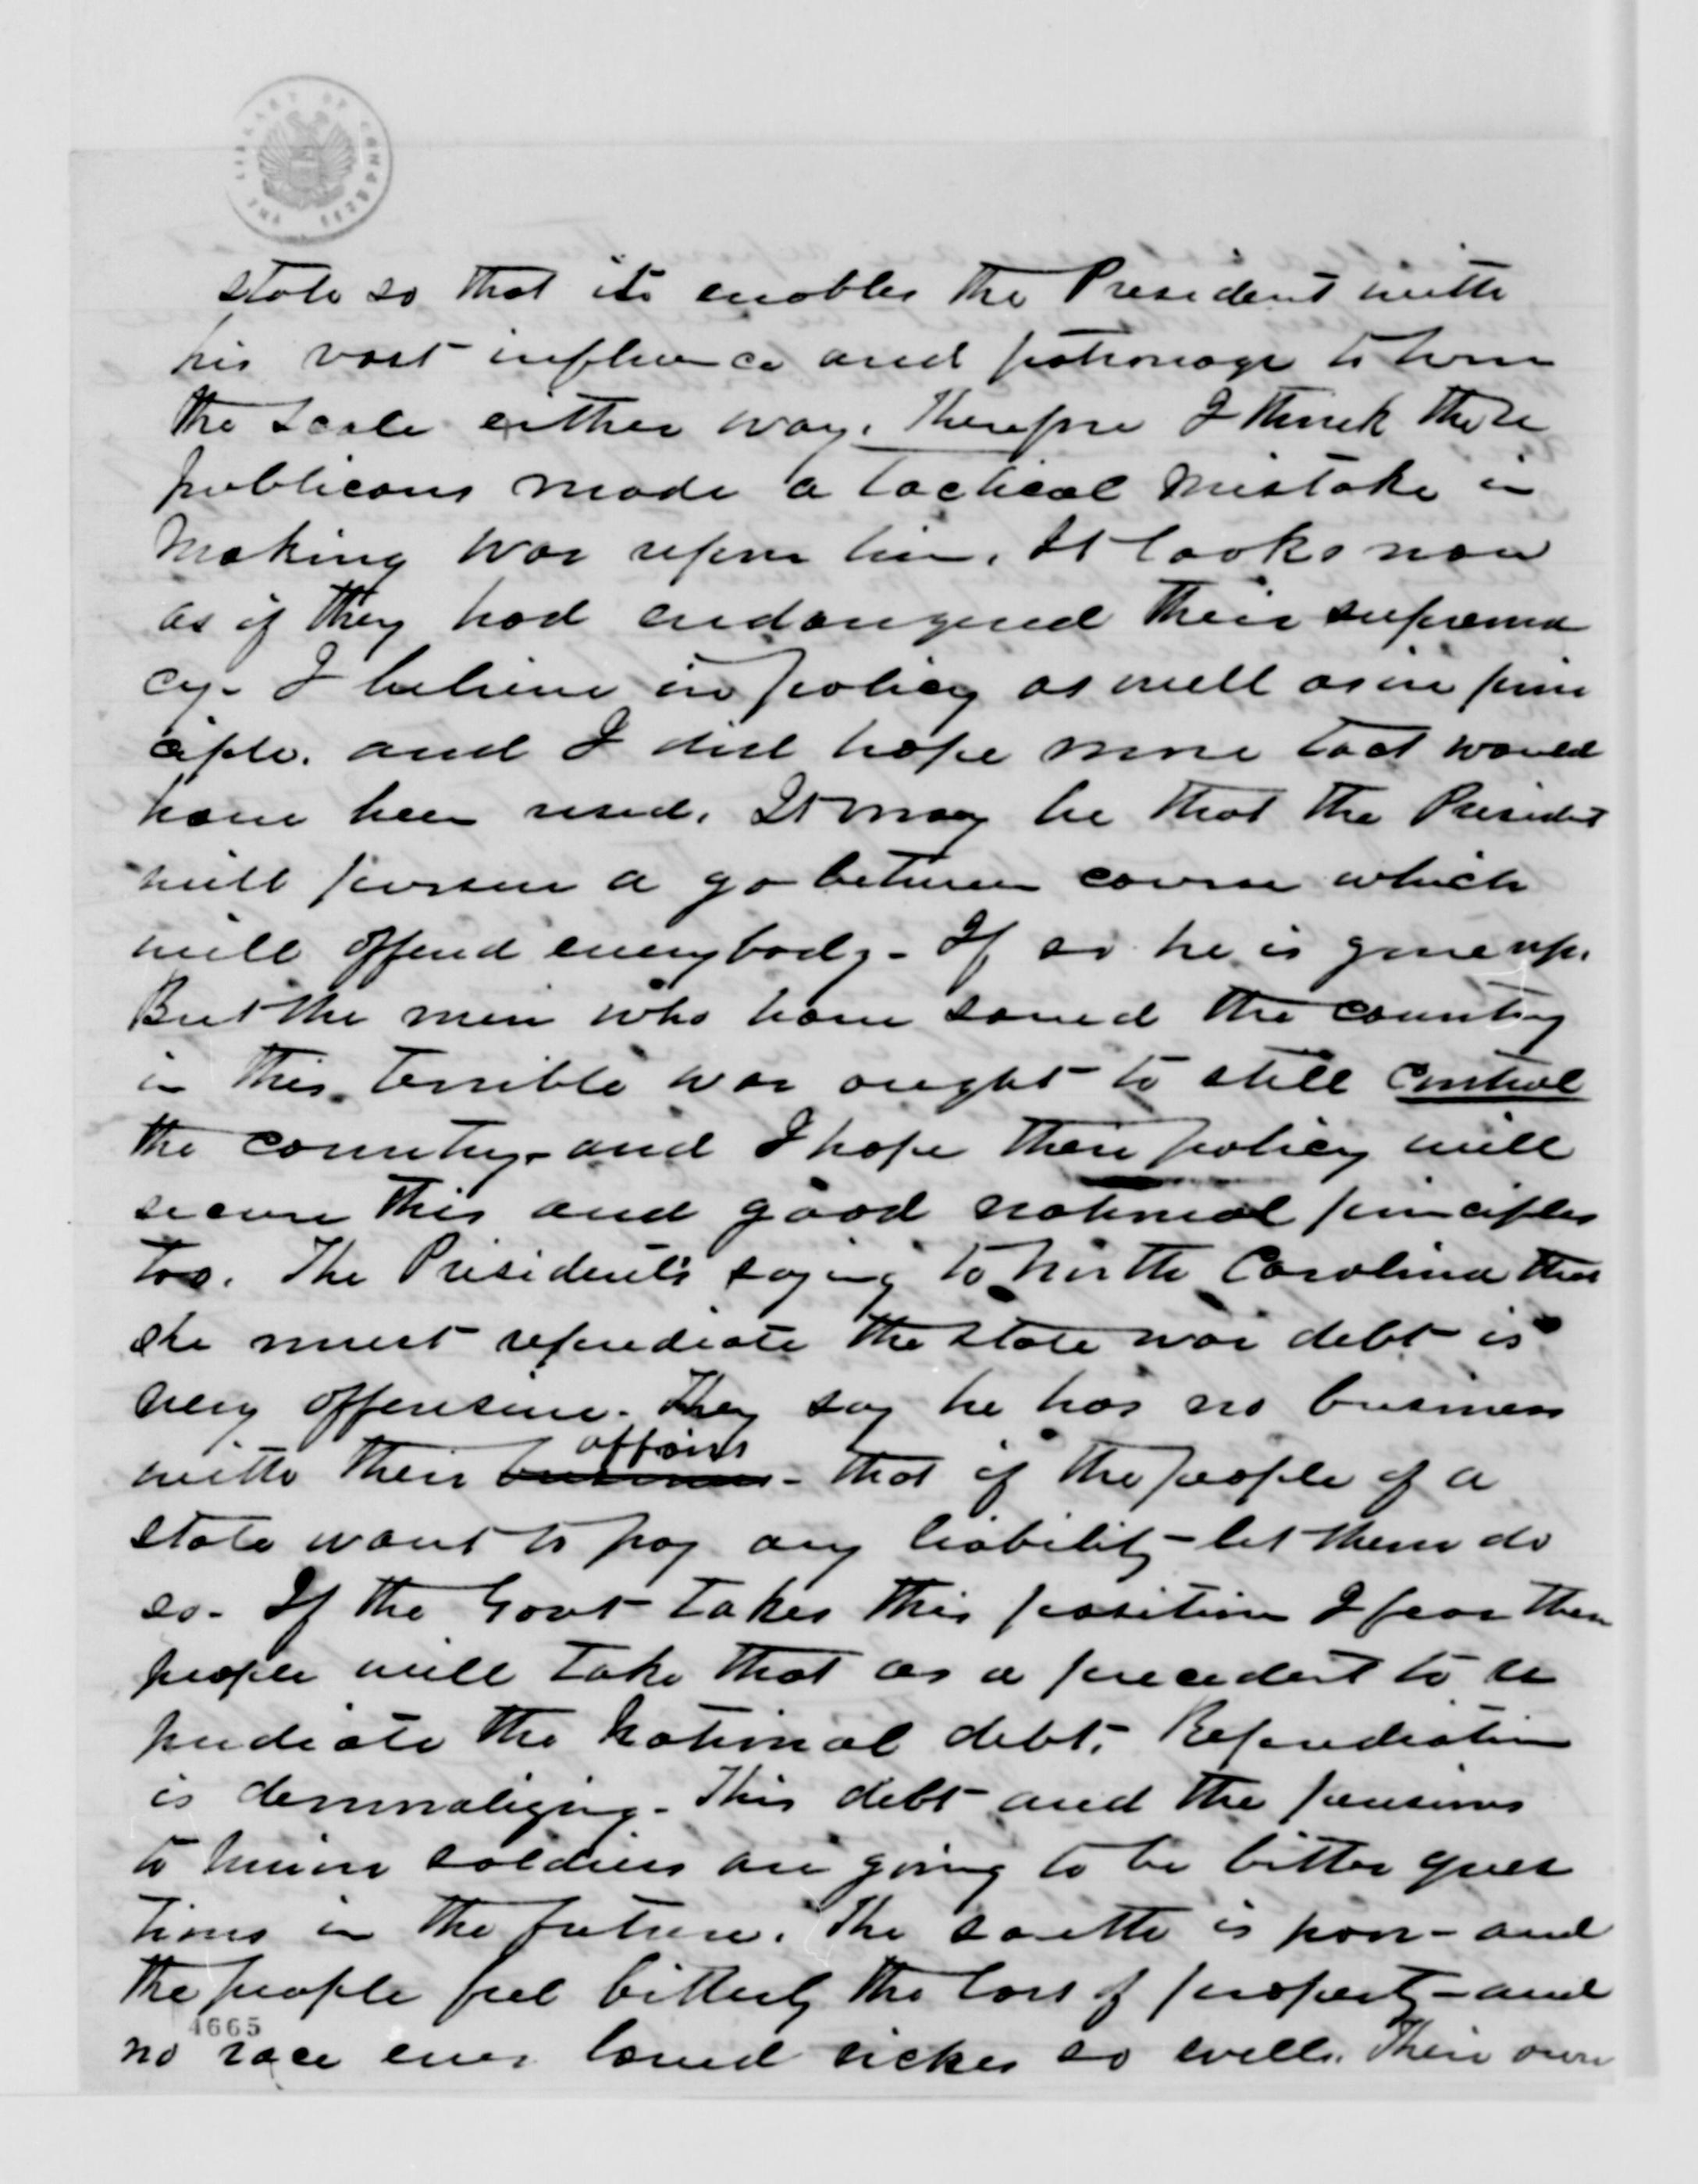 THE LIBRARY OF CONGRESS
state so that its enables the President with
his vast influence and patronage to turn
the scale either way. Therefore I think the re
publicans made a tactical mistake in
making war upon him. It looks now
as if they had endangered their suprema
cy. I believe in policy as well as in prin
ciple. and I did hope more tact would
have been used. It may be that the President
will pursue a go between course which
will offend everybody - If so he is gone up.
But the men who have saved the country
in this terrible war ought to still control
the country - and I hope their policy will
secure this and good national principles
too. The President's saying to North Carolina that
she must repudiate the state war debt is
very offensive. They say he has no business
affairs
with their business - that if the people of a
state want to pay any liability - let them do
so - If the Govt takes this position I fear these
people will take that as a precedent to re
pudiate the National debt. Repudiation
is demoralizing - This debt and the pensions
to Union soldiers are going to be bitter ques
tions in the future. The South is poor - and
the people feel bitterly the loss of property - and
4665
no race ever loved riches so well. Their own